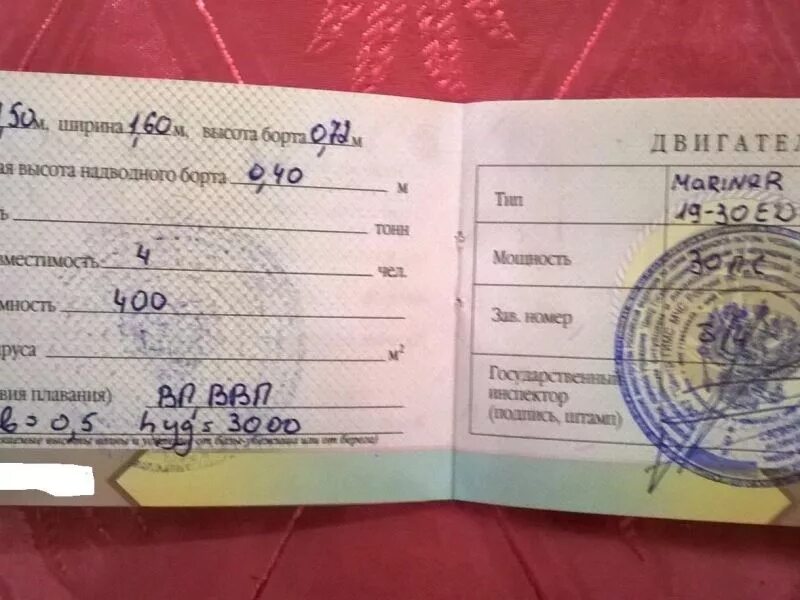 ,50 м, ширина 1,60 м, высота борта 0,72 м
ая высота надводного борта 0,40 м
ь тонн
вместимость 4 чел.
мность 400
руса м²
вия плавания) ВП, ВВП
в = 0,5 hуд = 3000
от базы-убежища или от берега)
ДВИГАТЕЛ
Тип MARINER
19-30 ED
Мощность 30 л.с
Зав. номер
Государственный
инспектор
(подпись, штамп)